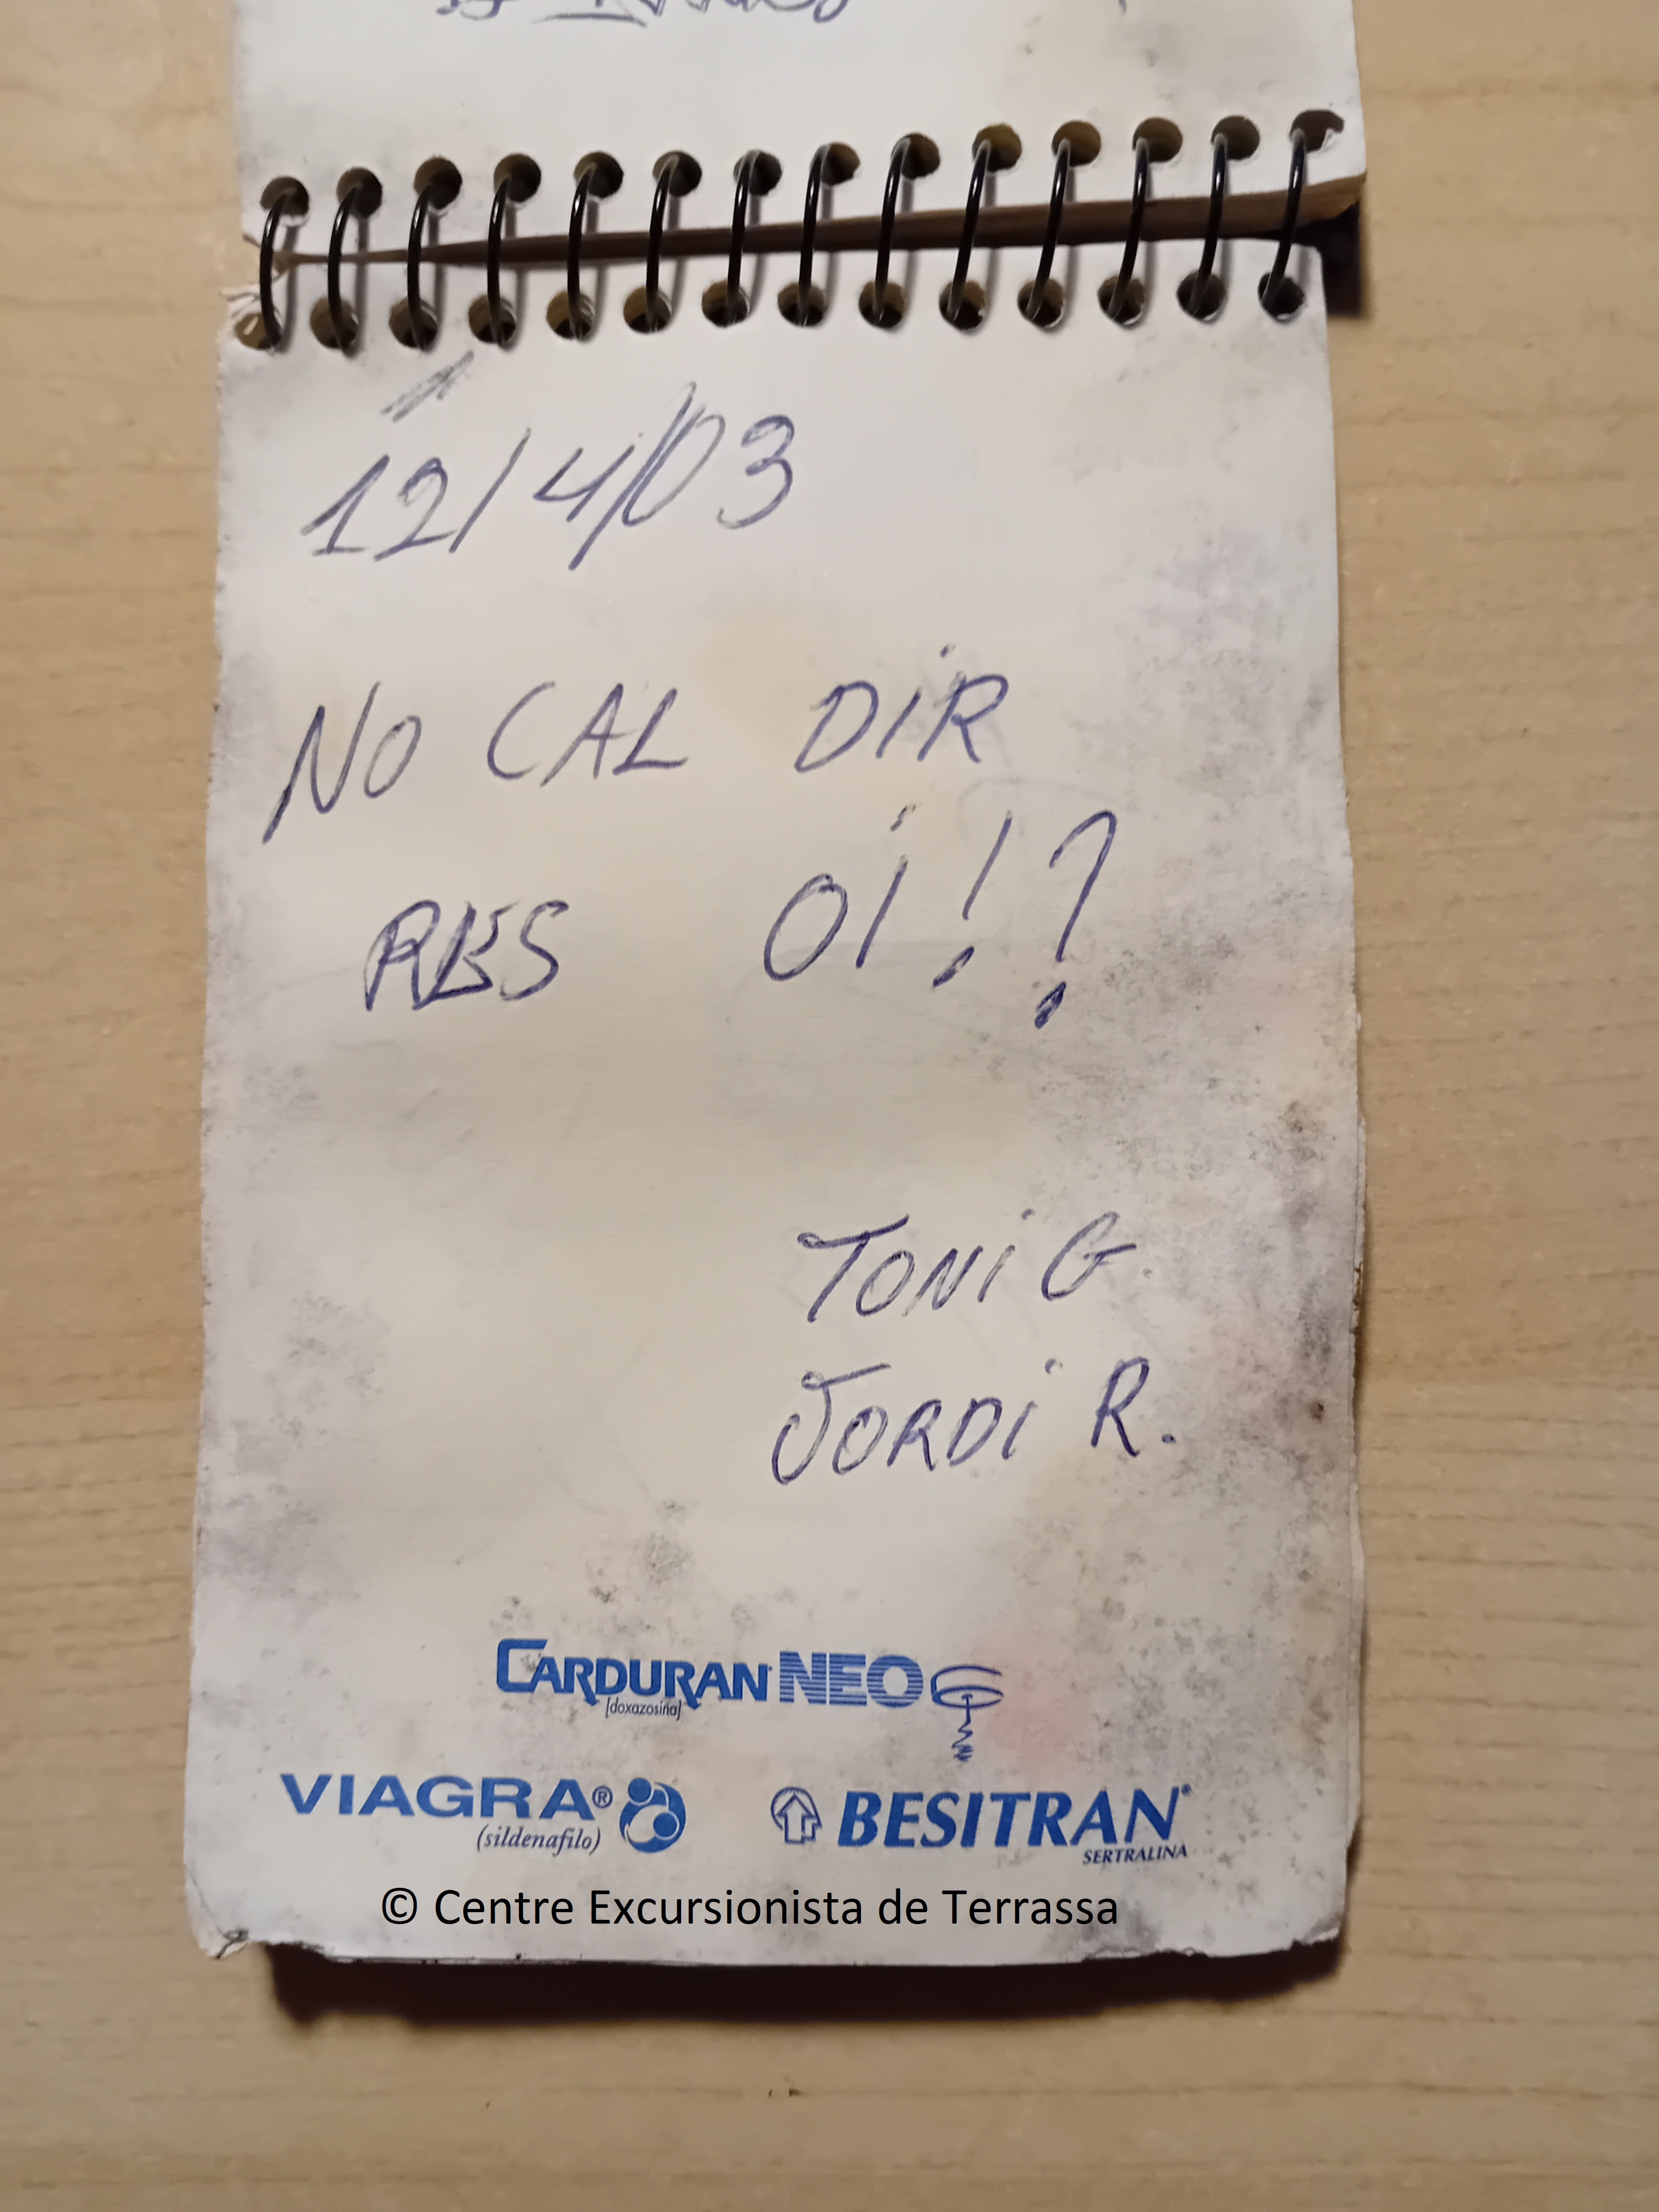 12/4/03
NO CAL DIR
RES OI!?
TONI G.
JORDI R.
CARDURAN NEO
[doxazosina]
VIAGRA® BESITRAN®
(sildenafilo) SERTRALINA
© Centre Excursionista de Terrassa